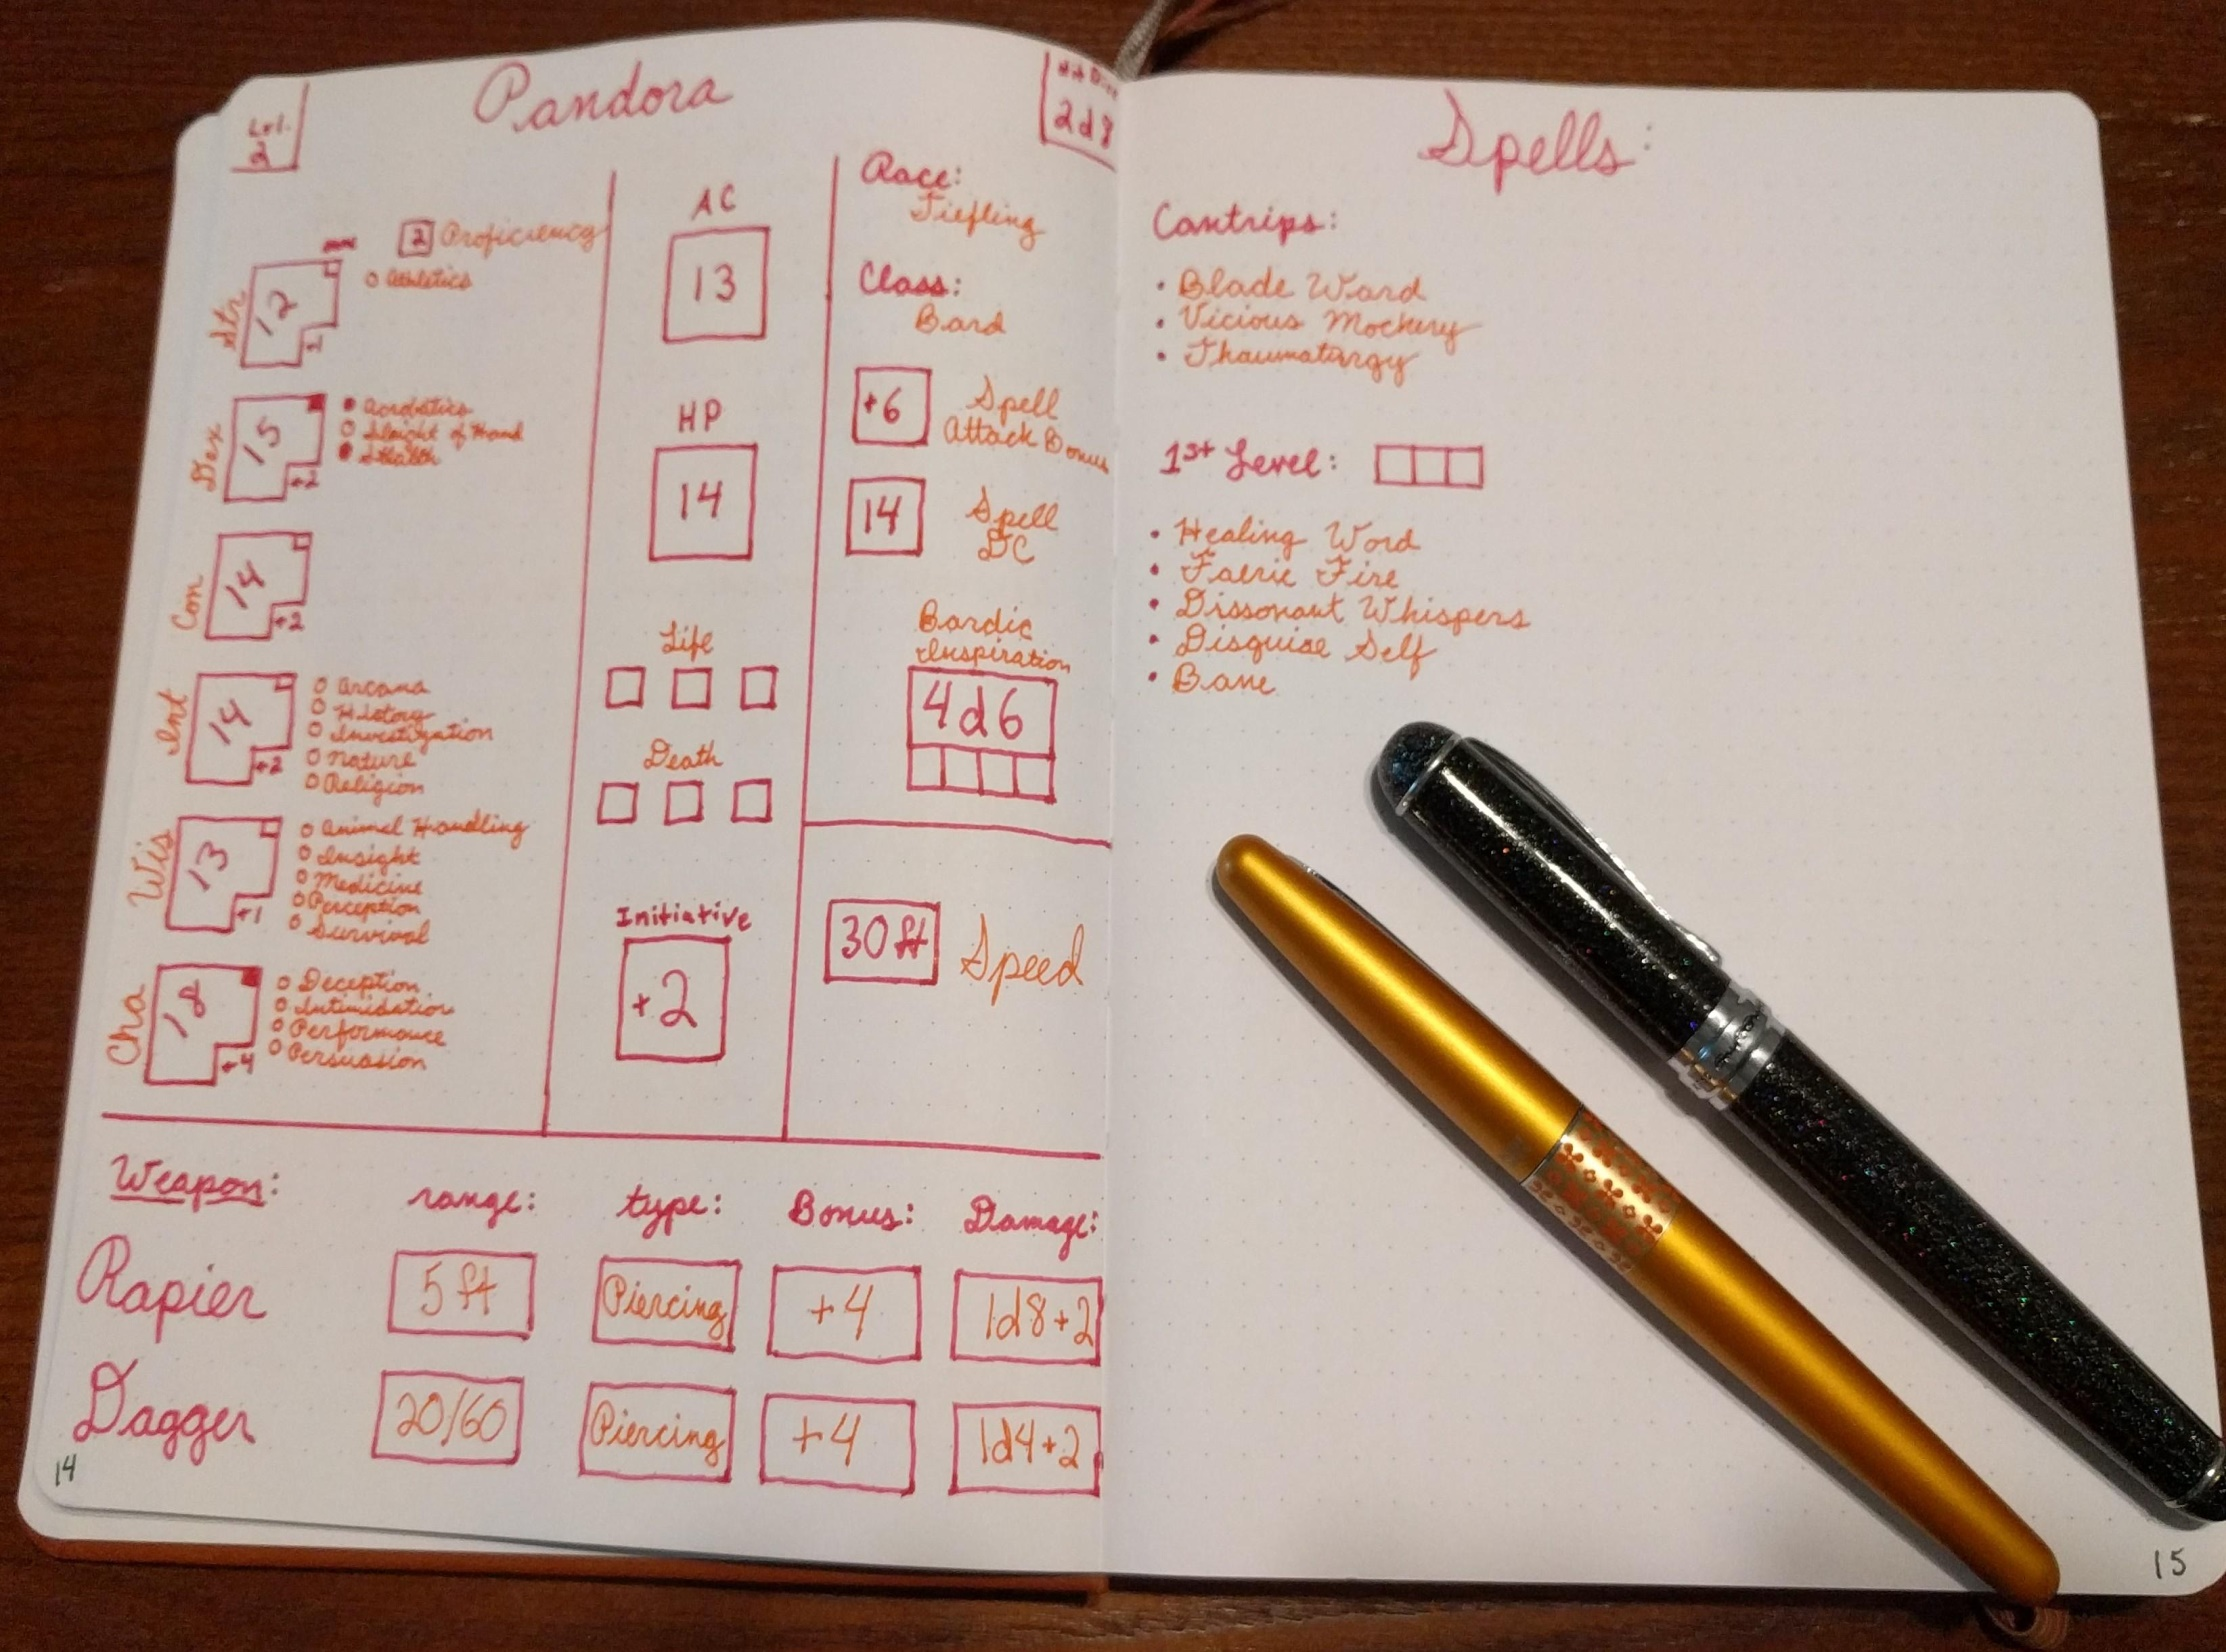 Lvl.
2
Pandora
2d8
2 Proficiency
Str
12
Athletics
Dex
15
+2
Acrobatics
Sleight of Hand
Stealth
Con
14
+2
Int
14
+2
Arcana
History
Investigation
Nature
Religion
Wis
13
+1
Animal Handling
Insight
Medicine
Perception
Survival
Cha
18
+4
Deception
Intimidation
Performance
Persuasion
AC
13
HP
14
Life
Death
Initiative
+2
Race:
Tiefling
Class:
Bard
+6
Spell
Attack Bonus
14
Spell
DC
Bardic
Inspiration
4d6
30ft Speed
Weapon: range: type: Bonus: Damage:
Rapier 5ft Piercing +4 1d8+2
Dagger 20/60 Piercing +4 1d4+2
14
Spells:
Cantrips:
• Blade Ward
• Vicious Mockery
• Thaumaturgy
1st Level:
• Healing Word
• Faerie Fire
• Dissonant Whispers
• Disguise Self
• Bane
15